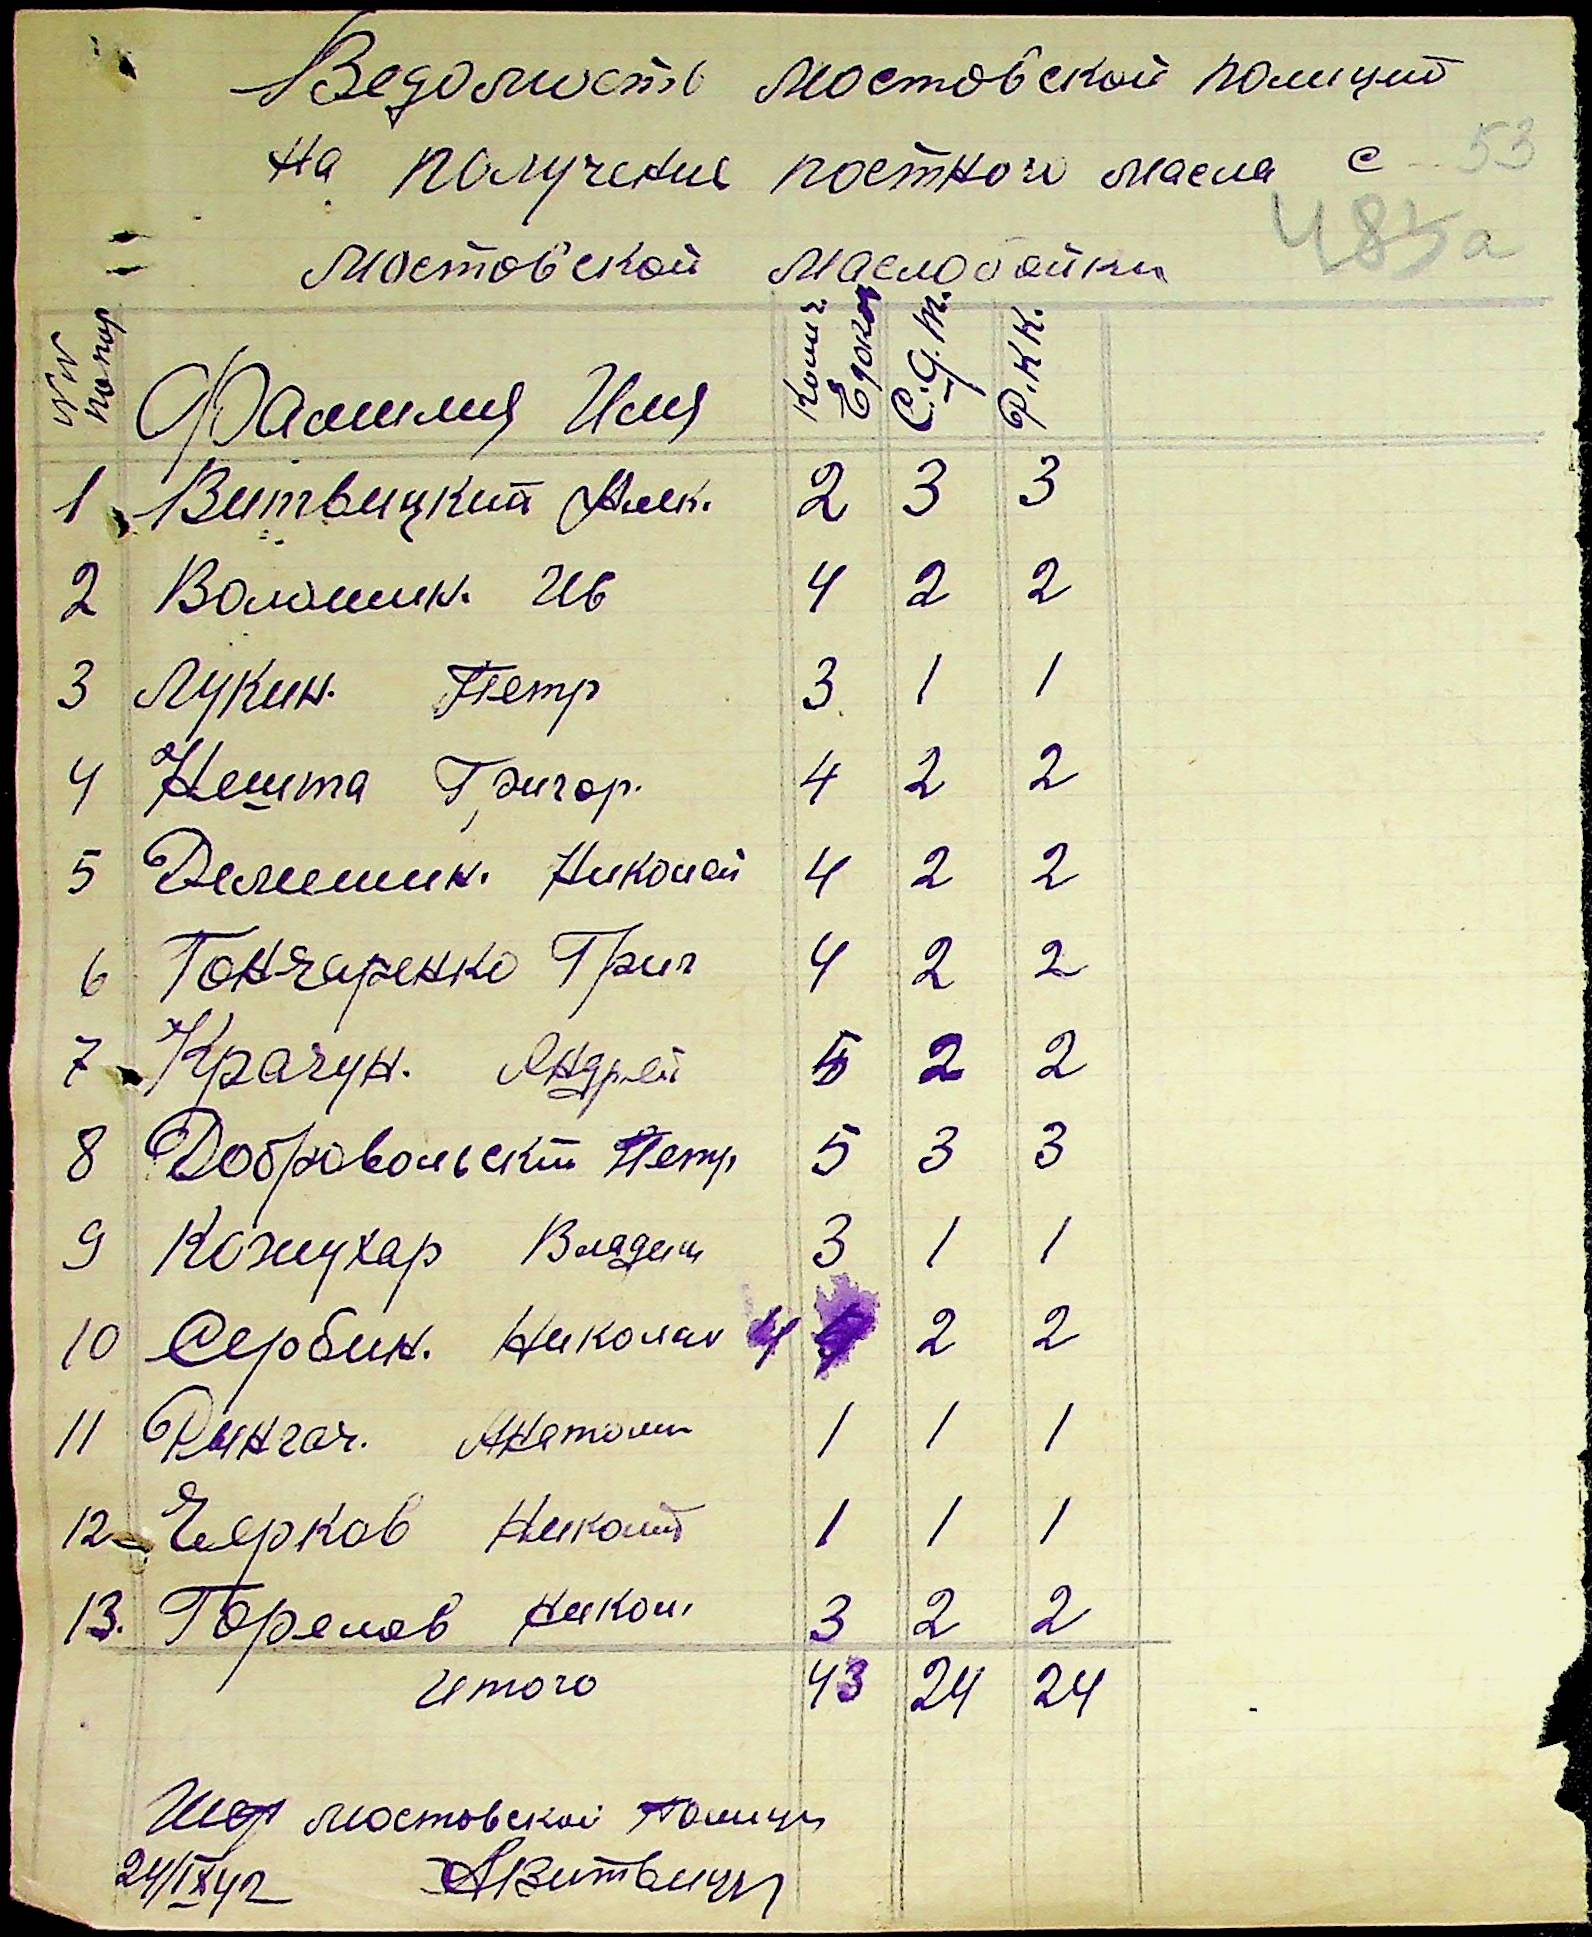 Ведомость Мостовской полиций
На получение постного масла с
53
485а
Мостовской Маслобойки
№№ по пор Фамилия Имя Колич. Едоков С.Д.Т. Р.К.К.
1 Витвицкий Алек. 2 3 3
2 Волошин. Ив 4 2 2
3 Лукин. Петр 3 1 1
4 Нешта Григор. 4 2 2
5 Делимин. Николай 4 2 2
6 Гончаренко Григ 4 2 2
7 Крачун. Андрей 5 2 2
8 Добровольский Петр 5 3 3
9 Кожухар Владим 3 1 1
10 Сербин. Николай 4 2 2
11 Дингач. Анатоли 1 1 1
12 Чярков Николай 1 1 1
13. Горелов Никол. 3 2 2
итого 43 24 24
Шеф Мостовской Полиции
24/IX42 АВитвицк